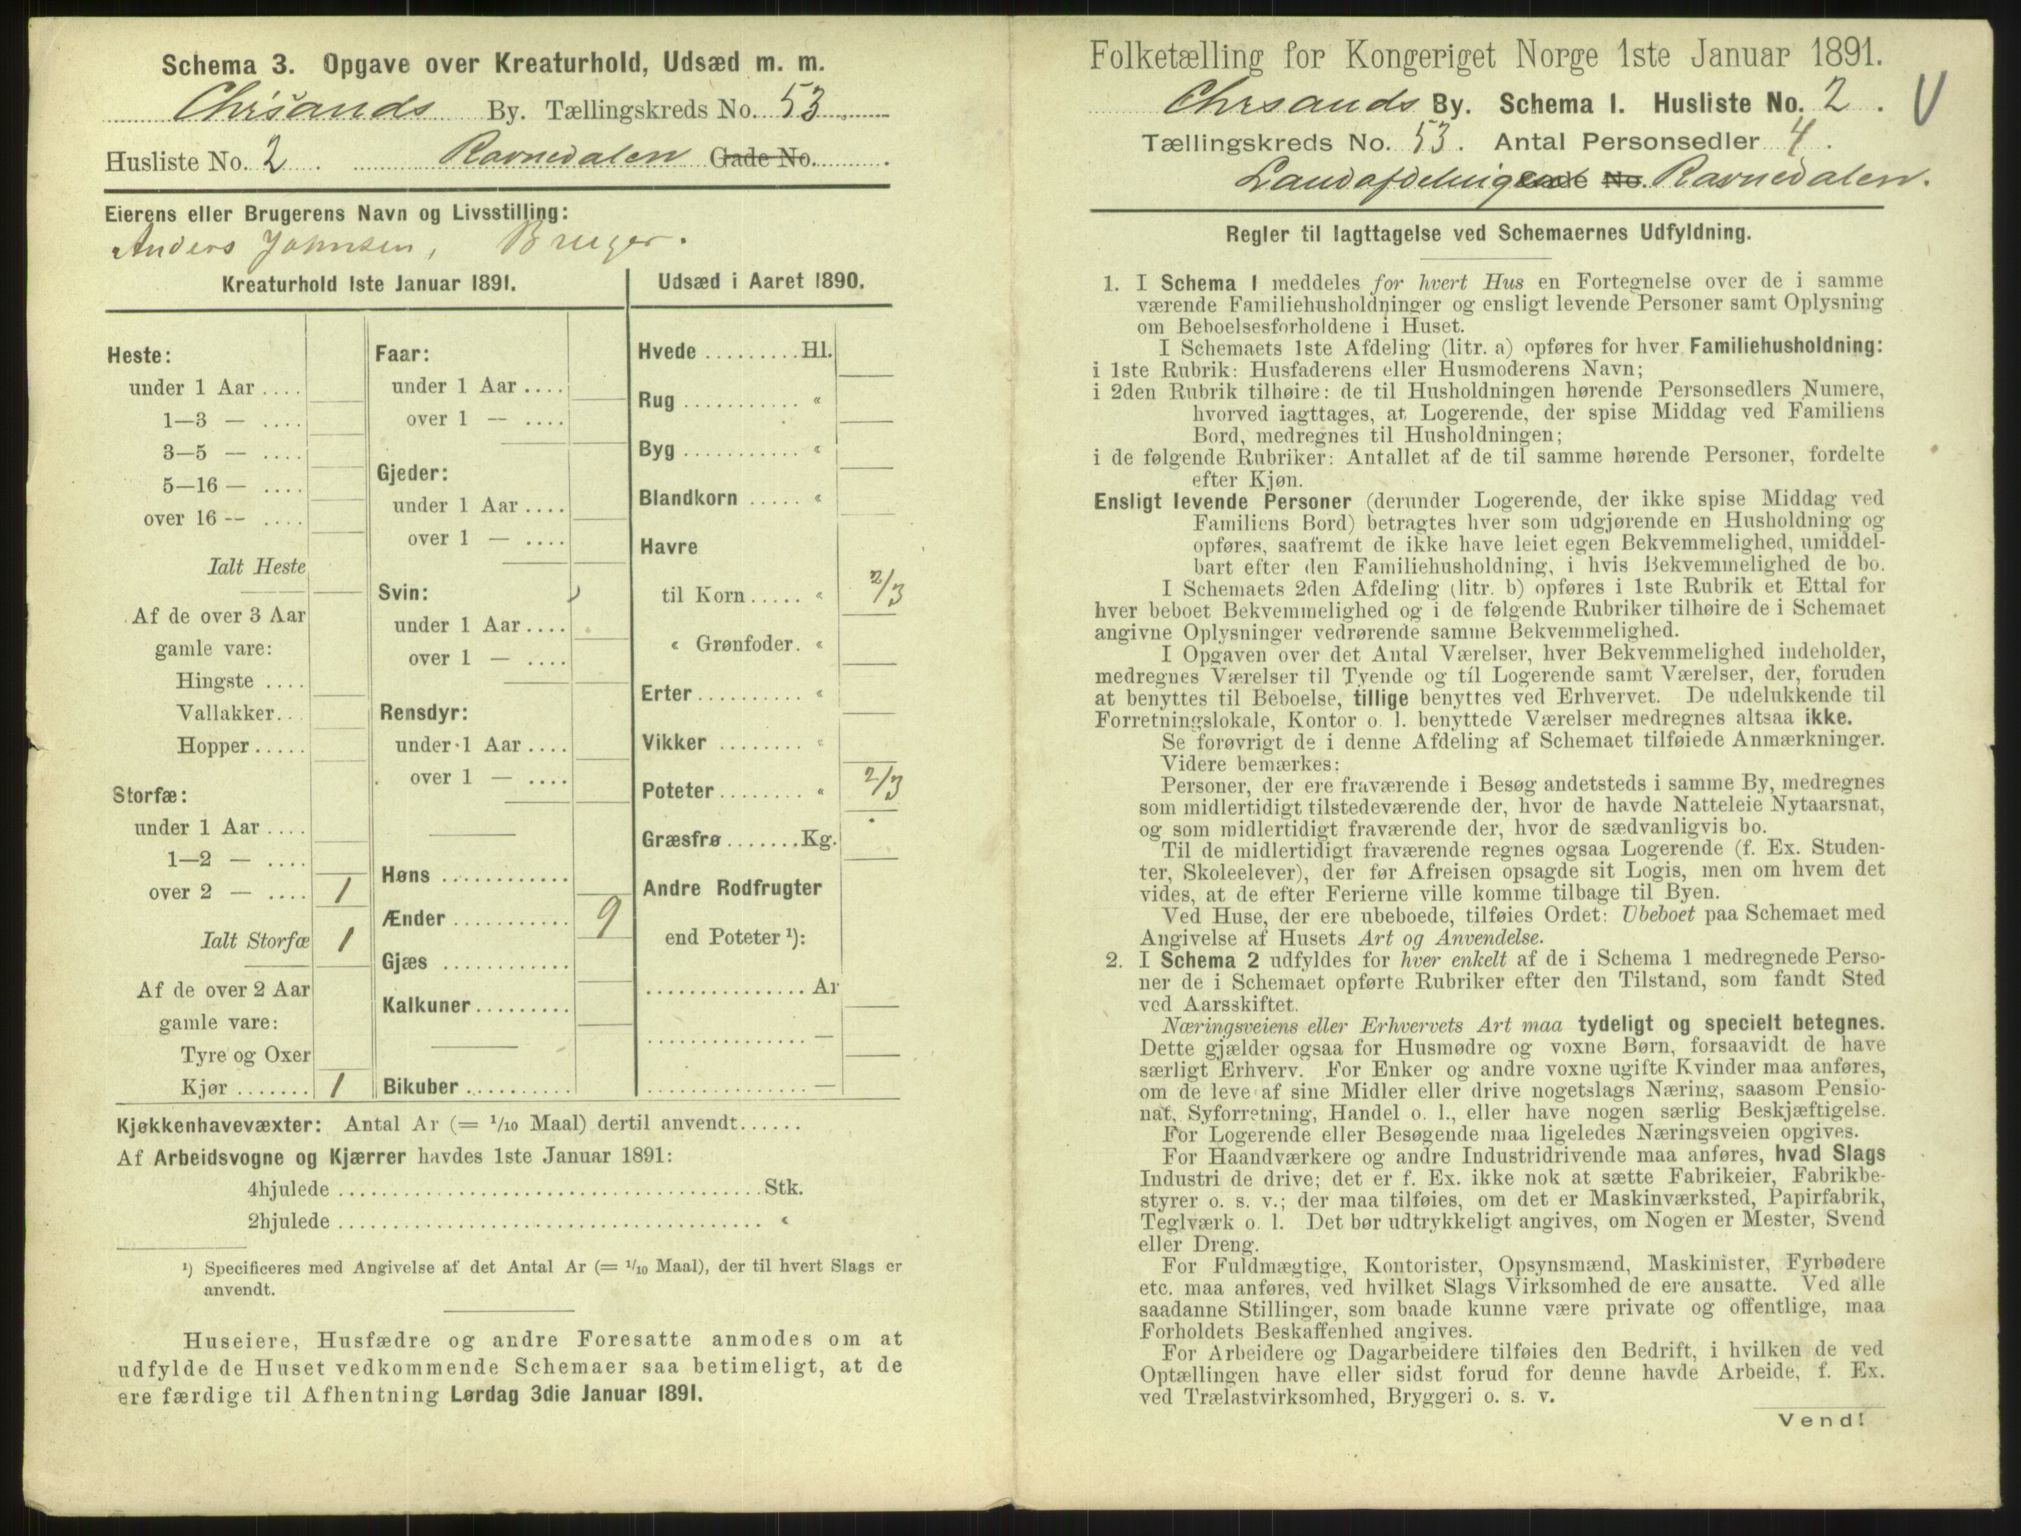 Schema 3. Opgave over Kreaturhold, Udsæd m. m.
Chrsands By. Tællingskreds No. 53
Husliste No. 2. Ravnedalen Gade No.
Eierens eller Brugerens Navn og Livsstilling:
Anders Johnsen, Bruger.
Kreaturhold 1ste Januar 1891.
Heste:
under 1 Aar ....
1—3 — ....
3—5 — ....
5—16 — ....
over 16 -- ....
Ialt Heste
Af de over 3 Aar
gamle vare:
Hingste ....
Vallakker...
Hopper.....
Storfæ:
under 1 Aar ....
1—2 — ....
over 2 — .... 1
Ialt Storfæ 1
Af de over 2 Aar
gamle vare:
Tyre og Oxer
Kjør ....... 1
Faar:
under 1 Aar ....
over 1 — ....
Gjeder:
under 1 Aar ....
over 1 — ....
Svin:
under 1 Aar ....
over 1 — ....
Rensdyr:
under 1 Aar ....
over 1 — ....
Høns ............
Ænder ........... 9
Gjæs ............
Kalkuner.........
Bikuber ..........
Udsæd i Aaret 1890.
Hvede ......... Hl.
Rug ........... «
Byg ........... «
Blandkorn ..... «
Havre
til Korn ..... « 2/3
« Grønfoder. «
Erter.......... «
Vikker ........ «
Poteter ........ « 2/3
Græsfrø ....... Kg.
Andre Rodfrugter
end Poteter ¹):
............... Ar
............... —
............... —
Kjøkkenhavevæxter: Antal Ar (= 1/10 Maal) dertil anvendt......
Af Arbeidsvogne og Kjærrer havdes 1ste Januar 1891:
4hjulede ..................................... Stk.
2hjulede ..................................... «
¹) Specificeres med Angivelse af det Antal Ar (= 1/10 Maal), der til hvert Slags er
anvendt.
Huseiere, Husfædre og andre Foresatte anmodes om at
udfylde de Huset vedkommende Schemaer saa betimeligt, at de
ere færdige til Afhentning Lørdag 3die Januar 1891.
Folketælling for Kongeriget Norge 1ste Januar 1891.
Chrsands By. Schema 1. Husliste No. 2. V
Tællingskreds No. 53. Antal Personsedler 4.
Landafdelingen Gade No. Ravnedalen.
Regler til Iagttagelse ved Schemaernes Udfyldning.
1. I Schema 1 meddeles for hvert Hus en Fortegnelse over de i samme
værende Familiehusholdninger og ensligt levende Personer samt Oplysning
om Beboelsesforholdene i Huset.
I Schemaets 1ste Afdeling (litr. a) opføres for hver Familiehusholdning:
i 1ste Rubrik: Husfaderens eller Husmoderens Navn;
i 2den Rubrik tilhøire: de til Husholdningen hørende Personsedlers Numere,
hvorved iagttages, at Logerende, der spise Middag ved Familiens
Bord, medregnes til Husholdningen;
i de følgende Rubriker: Antallet af de til samme hørende Personer, fordelte
efter Kjøn.
Ensligt levende Personer (derunder Logerende, der ikke spise Middag ved
Familiens Bord) betragtes hver som udgjørende en Husholdning og
opføres, saafremt de ikke have leiet egen Bekvemmelighed, umiddel-
bart efter den Familiehusholdning, i hvis Bekvemmelighed de bo.
I Schemaets 2den Afdeling (litr. b) opføres i 1ste Rubrik et Ettal for
hver beboet Bekvemmelighed og i de følgende Rubriker tilhøire de i Schemaet
angivne Oplysninger vedrørende samme Bekvemmelighed.
I Opgaven over det Antal Værelser, hver Bekvemmelighed indeholder,
medregnes Værelser til Tyende og til Logerende samt Værelser, der, foruden
at benyttes til Beboelse, tillige benyttes ved Erhvervet. De udelukkende til
Forretningslokale, Kontor o. l. benyttede Værelser medregnes altsaa ikke.
Se forøvrigt de i denne Afdeling af Schemaet tilføiede Anmærkninger.
Videre bemærkes:
Personer, der ere fraværende i Besøg andetsteds i samme By, medregnes
som midlertidigt tilstedeværende der, hvor de havde Natteleie Nytaarsnat,
og som midlertidigt fraværende der, hvor de sædvanligvis bo.
Til de midlertidigt fraværende regnes ogsaa Logerende (f. Ex. Studen-
ter, Skoleelever), der før Afreisen opsagde sit Logis, men om hvem det
vides, at de efter Ferierne ville komme tilbage til Byen.
Ved Huse, der ere ubeboede, tilføies Ordet: Ubeboet paa Schemaet med
Angivelse af Husets Art og Anvendelse.
2. I Schema 2 udfyldes for hver enkelt af de i Schema 1 medregnede Perso-
ner de i Schemaet opførte Rubriker efter den Tilstand, som fandt Sted
ved Aarsskiftet.
Næringsveiens eller Erhvervets Art maa tydeligt og specielt betegnes.
Dette gjælder ogsaa for Husmødre og voxne Børn, forsaavidt de have
særligt Erhverv. For Enker og andre voxne ugifte Kvinder maa anføres,
om de leve af sine Midler eller drive nogetslags Næring, saasom Pensio-
nat, Syforretning, Handel o. l., eller have nogen særlig Beskjæftigelse.
For Logerende eller Besøgende maa ligeledes Næringsveien opgives.
For Haandværkere og andre Industridrivende maa anføres, hvad Slags
Industri de drive; det er f. Ex. ikke nok at sætte Fabrikeier, Fabrikbe-
styrer o. s. v.; der maa tilføies, om det er Maskinværksted, Papirfabrik,
Teglværk o. l. Det bør udtrykkeligt angives, om Nogen er Mester, Svend
eller Dreng.
For Fuldmægtige, Kontorister, Opsynsmænd, Maskinister, Fyrbødere
etc. maa anføres, ved hvilket Slags Virksomhed de ere ansatte. Ved alle
saadanne Stillinger, som baade kunne være private og offentlige, maa
Forholdets Beskaffenhed angives.
For Arbeidere og Dagarbeidere tilføies den Bedrift, i hvilken de ved
Optællingen have eller sidst forud for denne havde Arbeide, f. Ex.
ved Trælastvirksomhed, Bryggeri o. s. v.
Vend!